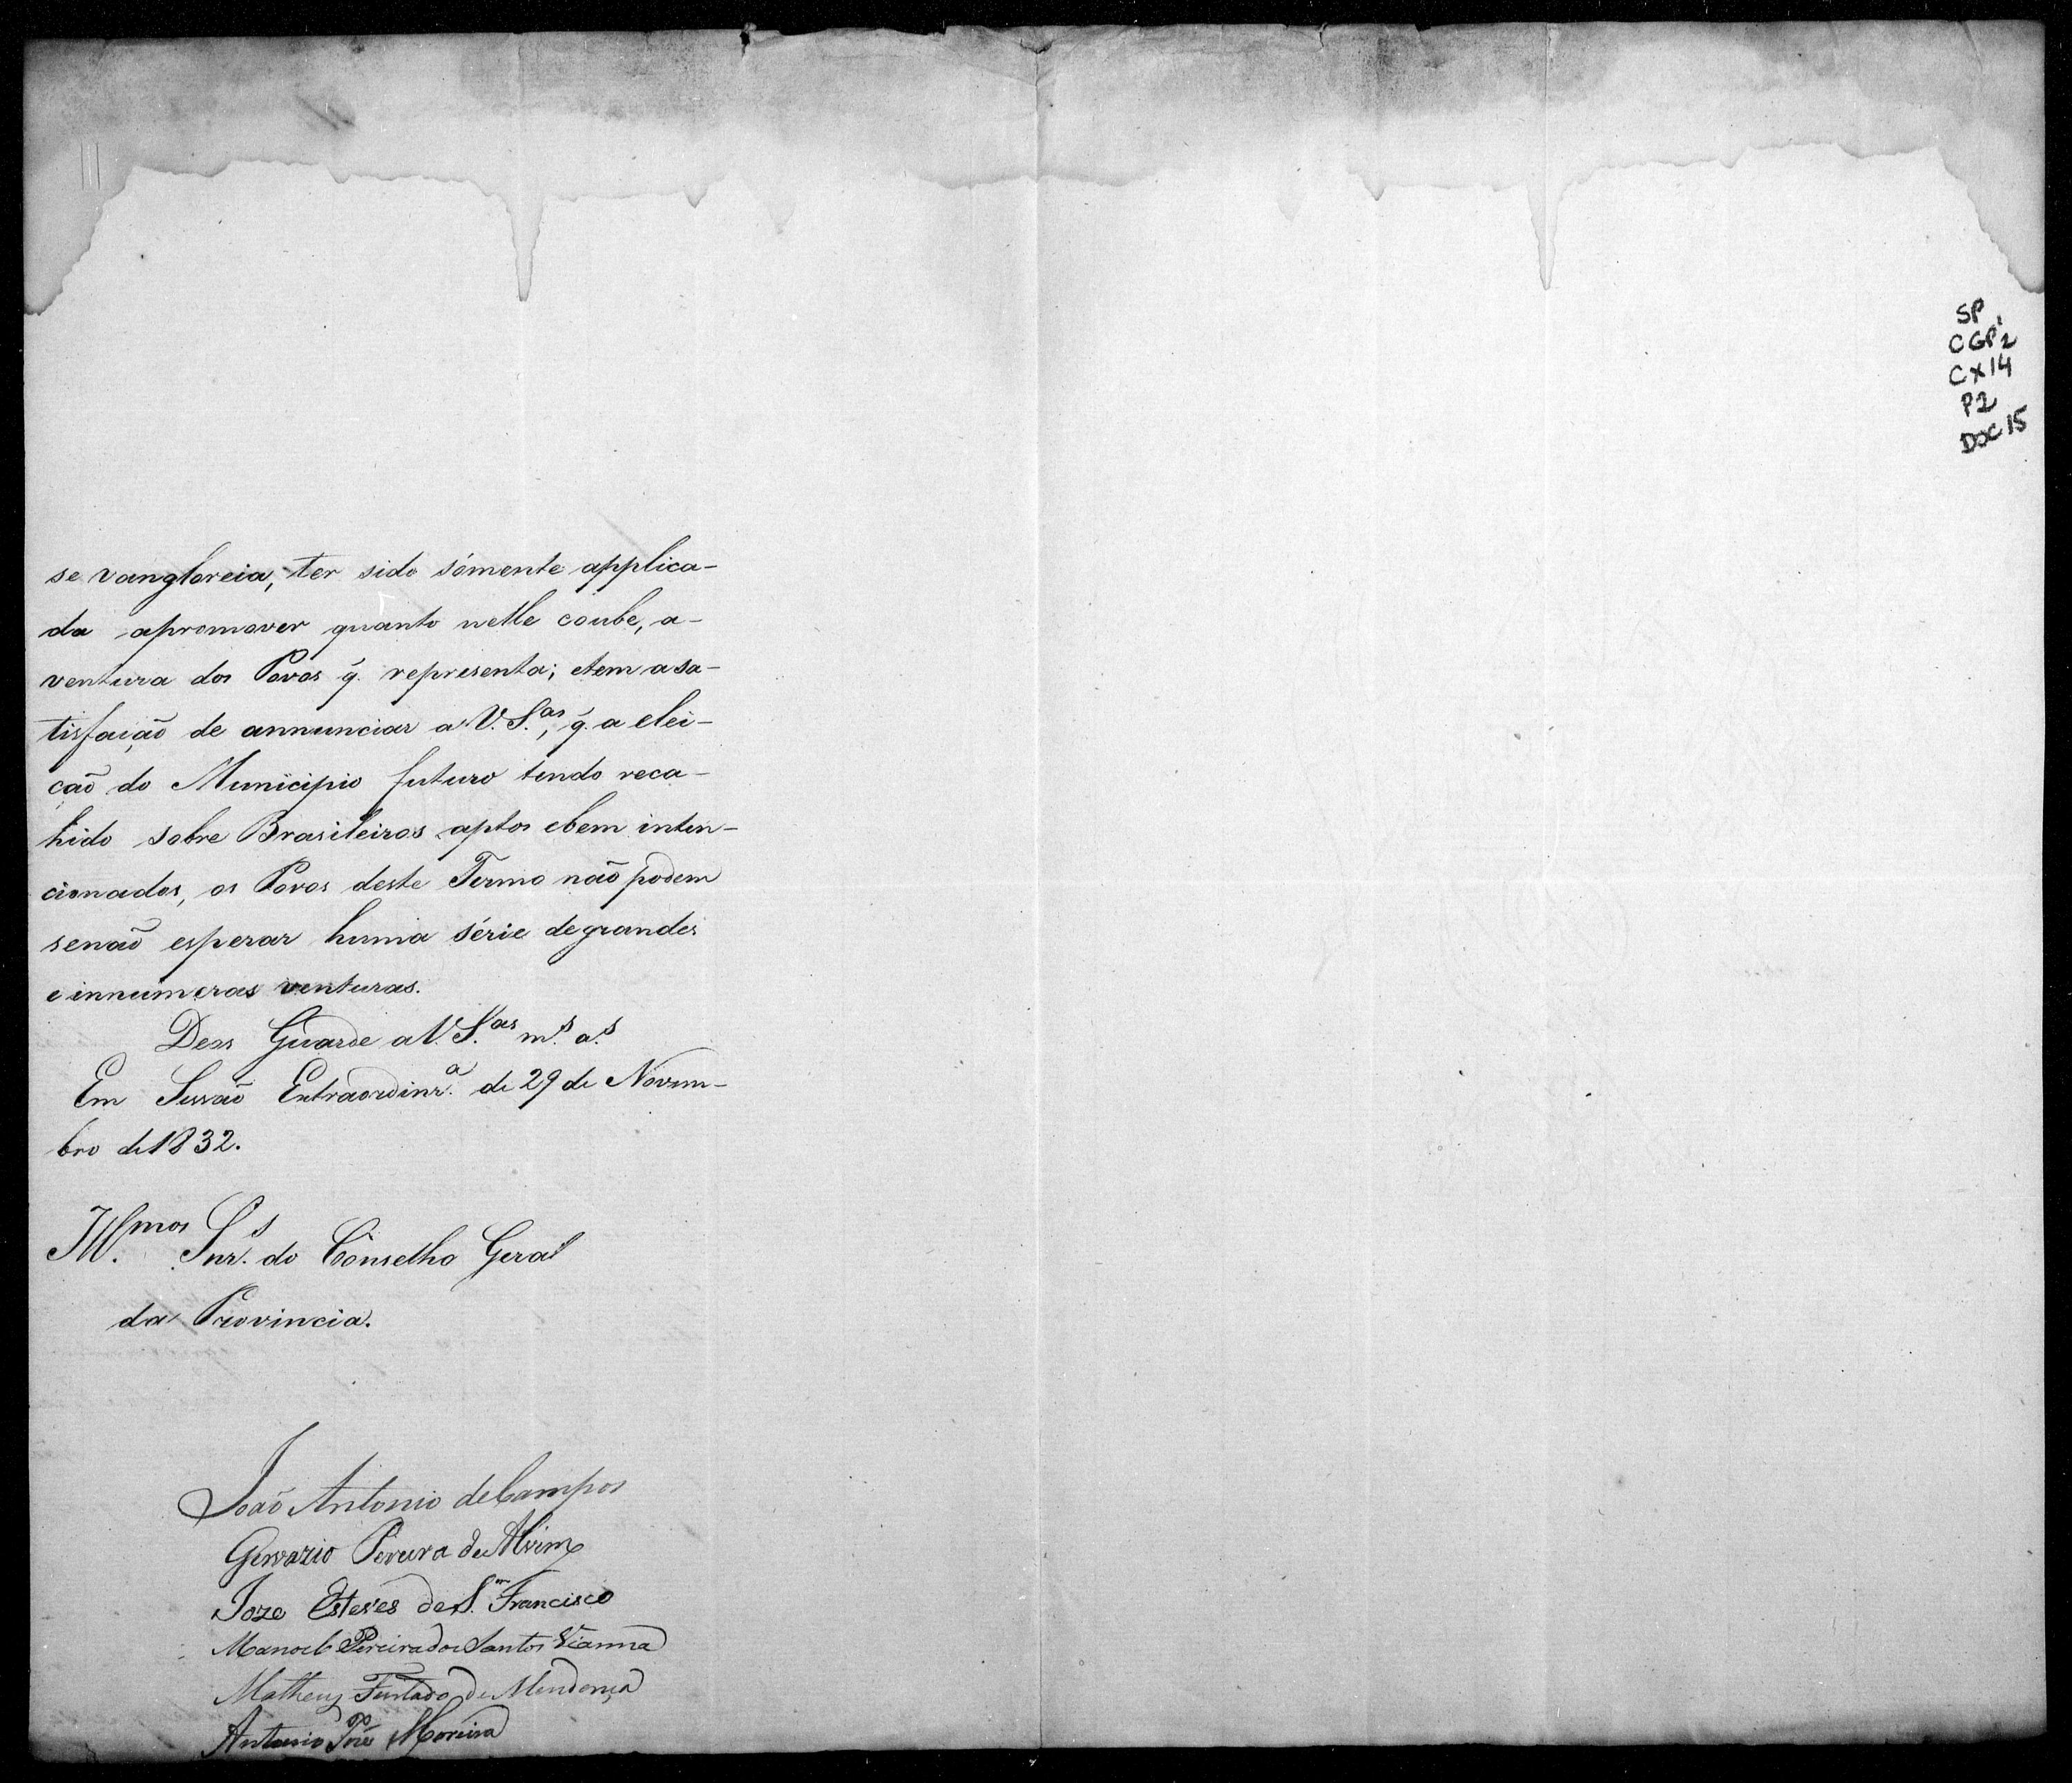 se vangloreia, ter sido sómente applica-
da apromover quanto nelle coube, a-
ventura dos Povos q̃. representa; etem a sa-
tisfação de annunciar a V. S.as, q̃. a elei-
ção do Municipio futuro tendo reca-
hido sobre Brasileiros aptos ebem inten-
cionados, os Povos deste Termo não podem
senão esperar huma série degrandes
e innumeras venturas.
Deos Guarde a V. S.as m.s a.s
Em Sessão Extraordinr.a de 29 de Novem-
bro de 1832.
Ill.mos Snr.s do Conselho Geral
da Provincia.
João Antonio de Campos
Gervazio Pereira de Alvim
Joze Esteves de S. Francisco
Manoel Pereira dos Santos Vianna
Matheus Furtado de Mendonça
Antonio José Moreira
SP
CGP1
2
CX14
P2
DOC 15